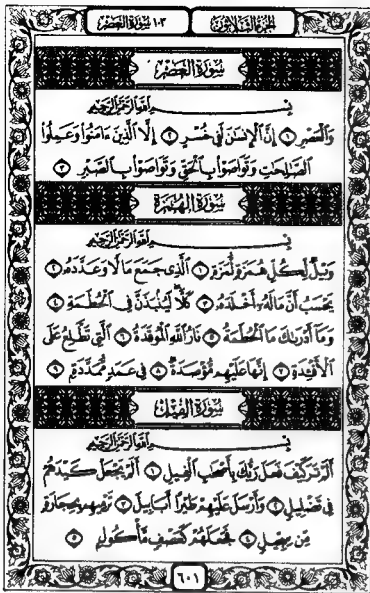 الجزء الثلاثون
١٠٣ سورة العصر
سُورَةُ العَصْرِ
بِسْمِ اللَّهِ الرَّحْمَٰنِ الرَّحِيمِ
وَالْعَصْرِ ١ إِنَّ الْإِنسَانَ لَفِي خُسْرٍ ٢ إِلَّا الَّذِينَ ءَامَنُوا وَعَمِلُوا
الصَّالِحَاتِ وَتَوَاصَوْا بِالْحَقِّ وَتَوَاصَوْا بِالصَّبْرِ ٣
سُورَةُ الهُمَزَةِ
بِسْمِ اللَّهِ الرَّحْمَٰنِ الرَّحِيمِ
وَيْلٌ لِّكُلِّ هُمَزَةٍ لُّمَزَةٍ ١ الَّذِي جَمَعَ مَالًا وَعَدَّدَهُ ٢
يَحْسَبُ أَنَّ مَالَهُ أَخْلَدَهُ ٣ كَلَّا لَيُنبَذَنَّ فِي الْحُطَمَةِ ٤
وَمَا أَدْرَىٰكَ مَا الْحُطَمَةُ ٥ نَارُ اللَّهِ الْمُوقَدَةُ ٦ الَّتِي تَطَّلِعُ عَلَى
الْأَفْئِدَةِ ٧ إِنَّهَا عَلَيْهِم مُّؤْصَدَةٌ ٨ فِي عَمَدٍ مُّمَدَّدَةٍ ٩
سُورَةُ الفِيلِ
بِسْمِ اللَّهِ الرَّحْمَٰنِ الرَّحِيمِ
أَلَمْ تَرَ كَيْفَ فَعَلَ رَبُّكَ بِأَصْحَابِ الْفِيلِ ١ أَلَمْ يَجْعَلْ كَيْدَهُمْ
فِي تَضْلِيلٍ ٢ وَأَرْسَلَ عَلَيْهِمْ طَيْرًا أَبَابِيلَ ٣ تَرْمِيهِم بِحِجَارَةٍ
مِّن سِجِّيلٍ ٤ فَجَعَلَهُمْ كَعَصْفٍ مَّأْكُولٍ ٥
٦٠١